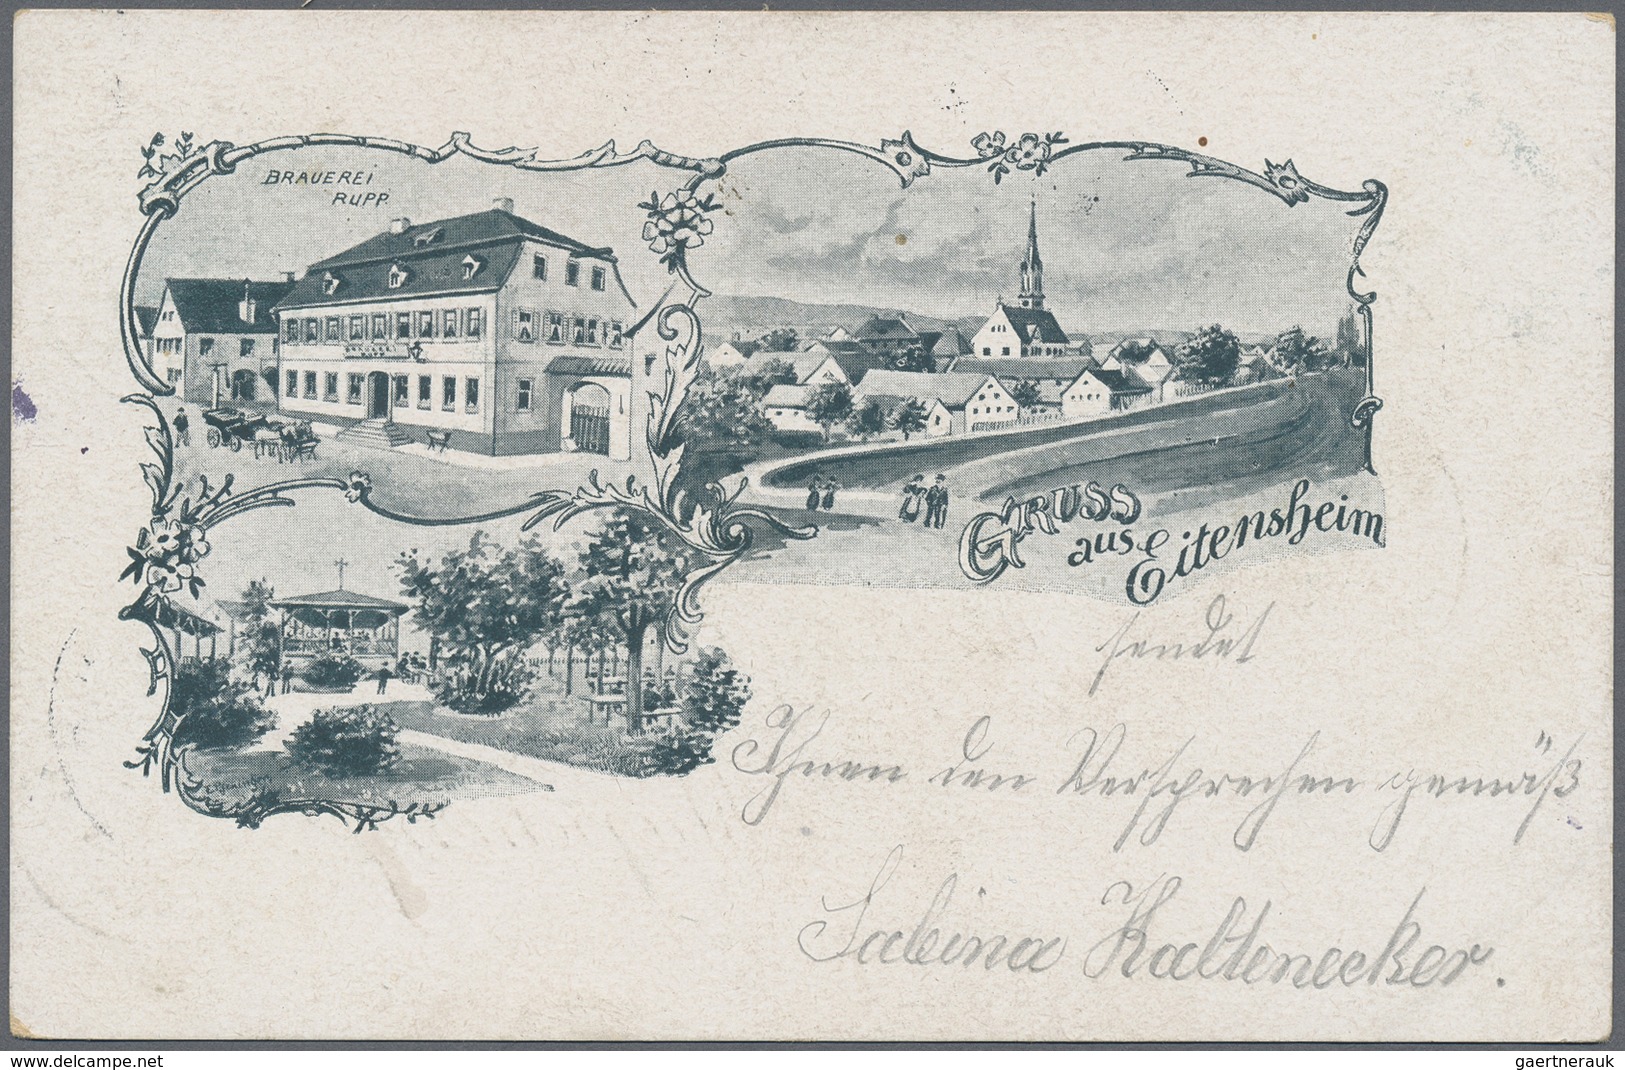 BRAUEREI
RUPP.
GRUSS
aus Eitensheim
sendet
Ihnen den Versprechen gemäß
Sabina Kaltenecker.
www.delcampe.net
gaertnerauk